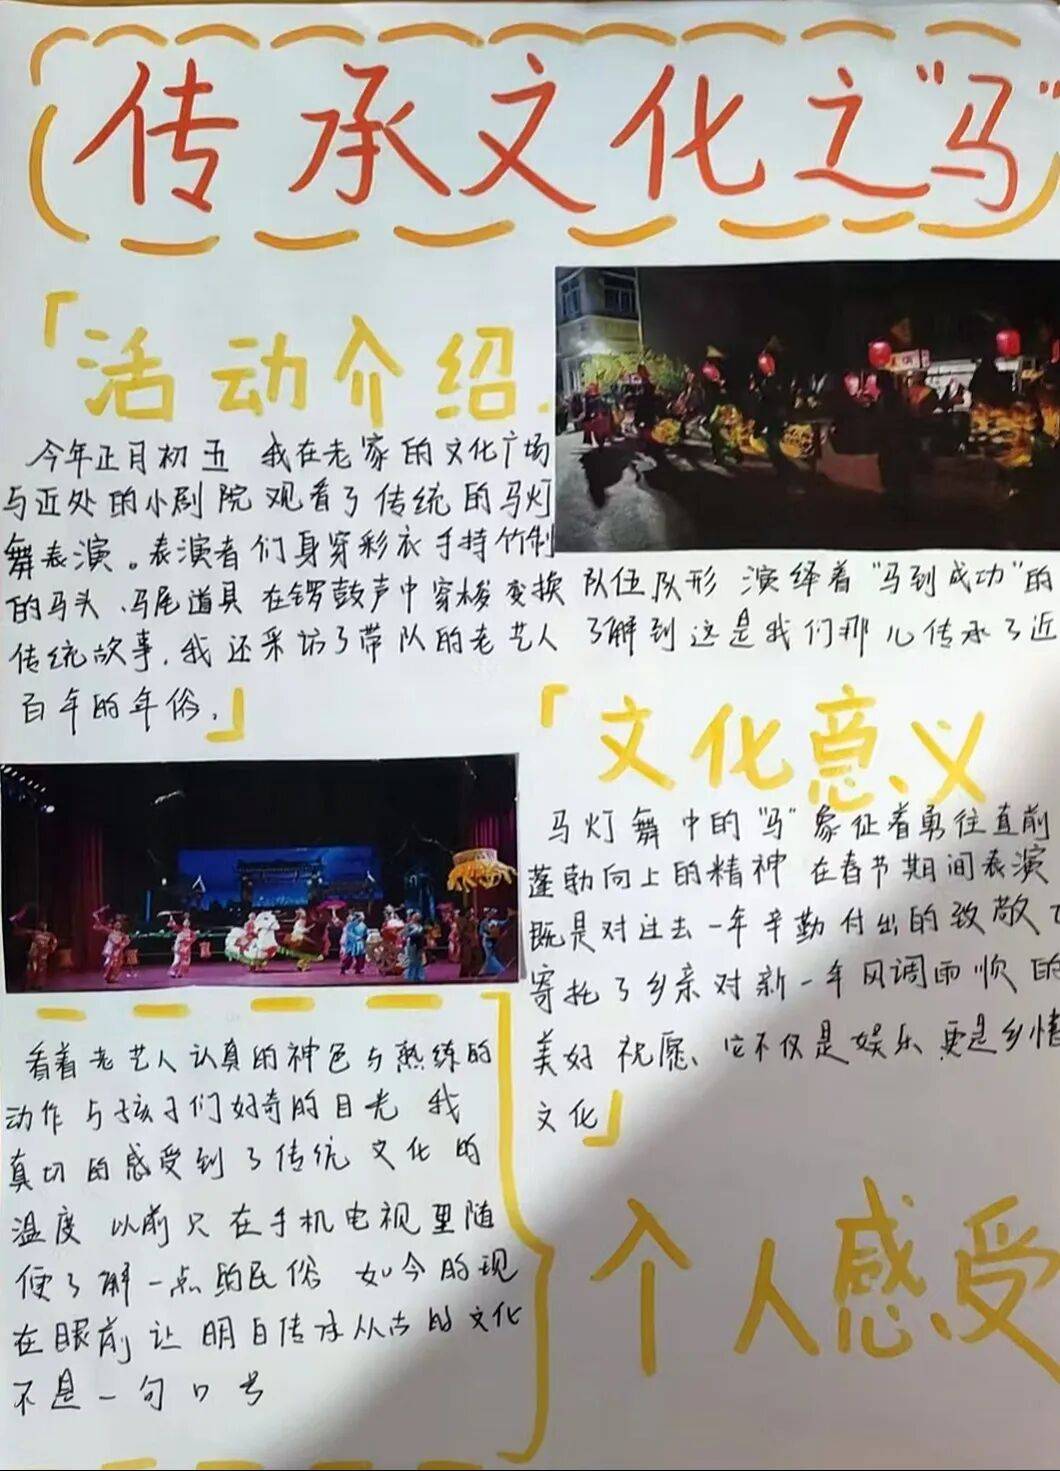 传承文化之“马”
「活动介绍.
今年正月初五 我在老家的文化广场
与近处的小剧院观看了传统的马灯
舞表演。表演者们身穿彩衣手持竹制
的马头、马尾道具 在锣鼓声中穿梭变换 队伍队形 演绎着“马到成功”的
传统故事,我还采访了带队的老艺人 了解到这是我们那儿传承了近
百年的年俗.」
「文化意义
马灯舞中的“马”象征着勇往直前
蓬勃向上的精神 在春节期间表演
既是对过去一年辛勤付出的致敬
寄托了乡亲对新一年风调雨顺的
美好祝愿、它不仅是娱乐更是乡情
文化」
看着老艺人认真的神色与熟练的
动作与孩子们好奇的目光 我
真切的感受到了传统文化的
温度 以前只在手机电视里随
便了解一点的民俗 如今的现
在眼前让明白传承从古的文化
不是一句口号
个人感受